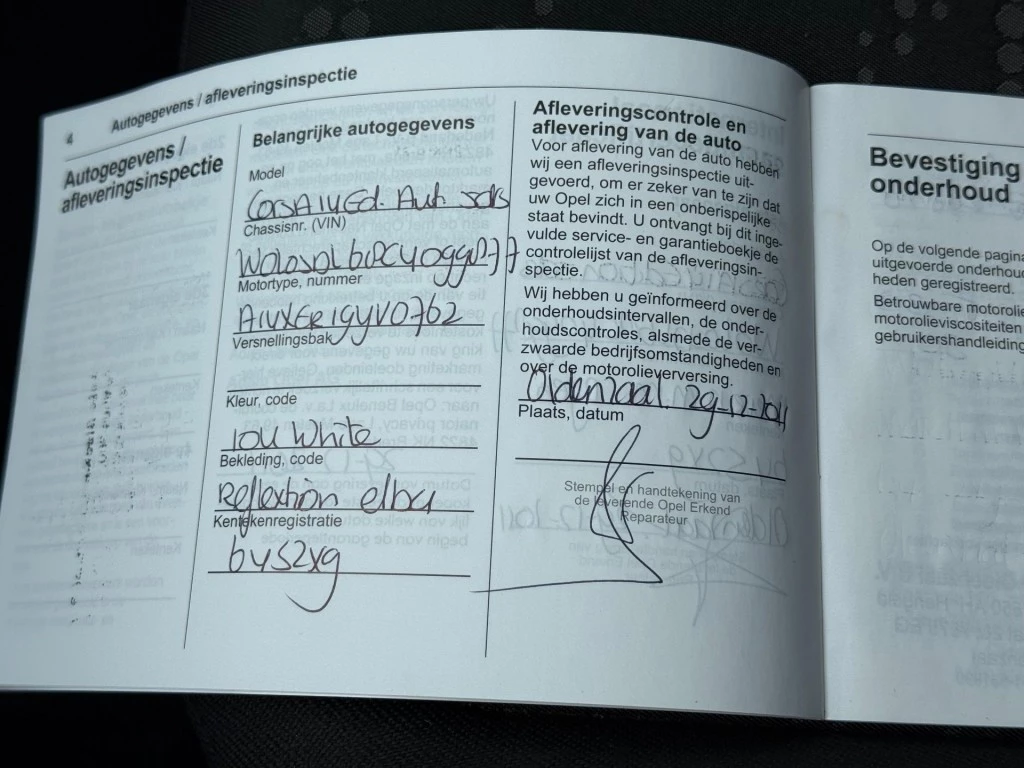 4 Autogegevens / afleveringsinspectie
Autogegevens /
afleveringsinspectie
Belangrijke autogegevens
Model
Chassisnr. (VIN)
Motortype, nummer
A14XER19YV0762
Versnellingsbak
Kleur, code
10U White
Bekleding, code
Reflextion elba
Kentekenregistratie
64S2xg
Afleveringscontrole en
aflevering van de auto
Voor aflevering van de auto hebben
wij een afleveringsinspectie uit-
gevoerd, om er zeker van te zijn dat
uw Opel zich in een onberispelijke
staat bevindt. U ontvangt bij dit inge-
vulde service- en garantieboekje de
controlelijst van de afleveringsin-
spectie.
Wij hebben u geïnformeerd over de
onderhoudsintervallen, de onder-
houdscontroles, alsmede de ver-
zwaarde bedrijfsomstandigheden en
over de motorolieverversing.
Oldenzaal. 29-12-2011
Plaats, datum
Stempel en handtekening van
de leverende Opel Erkend
Reparateur
Bevestiging
onderhoud
Op de volgende pagina
uitgevoerde onderhou
heden geregistreerd.
Betrouwbare motorolie
motorolieviscositeiten
gebruikershandleiding